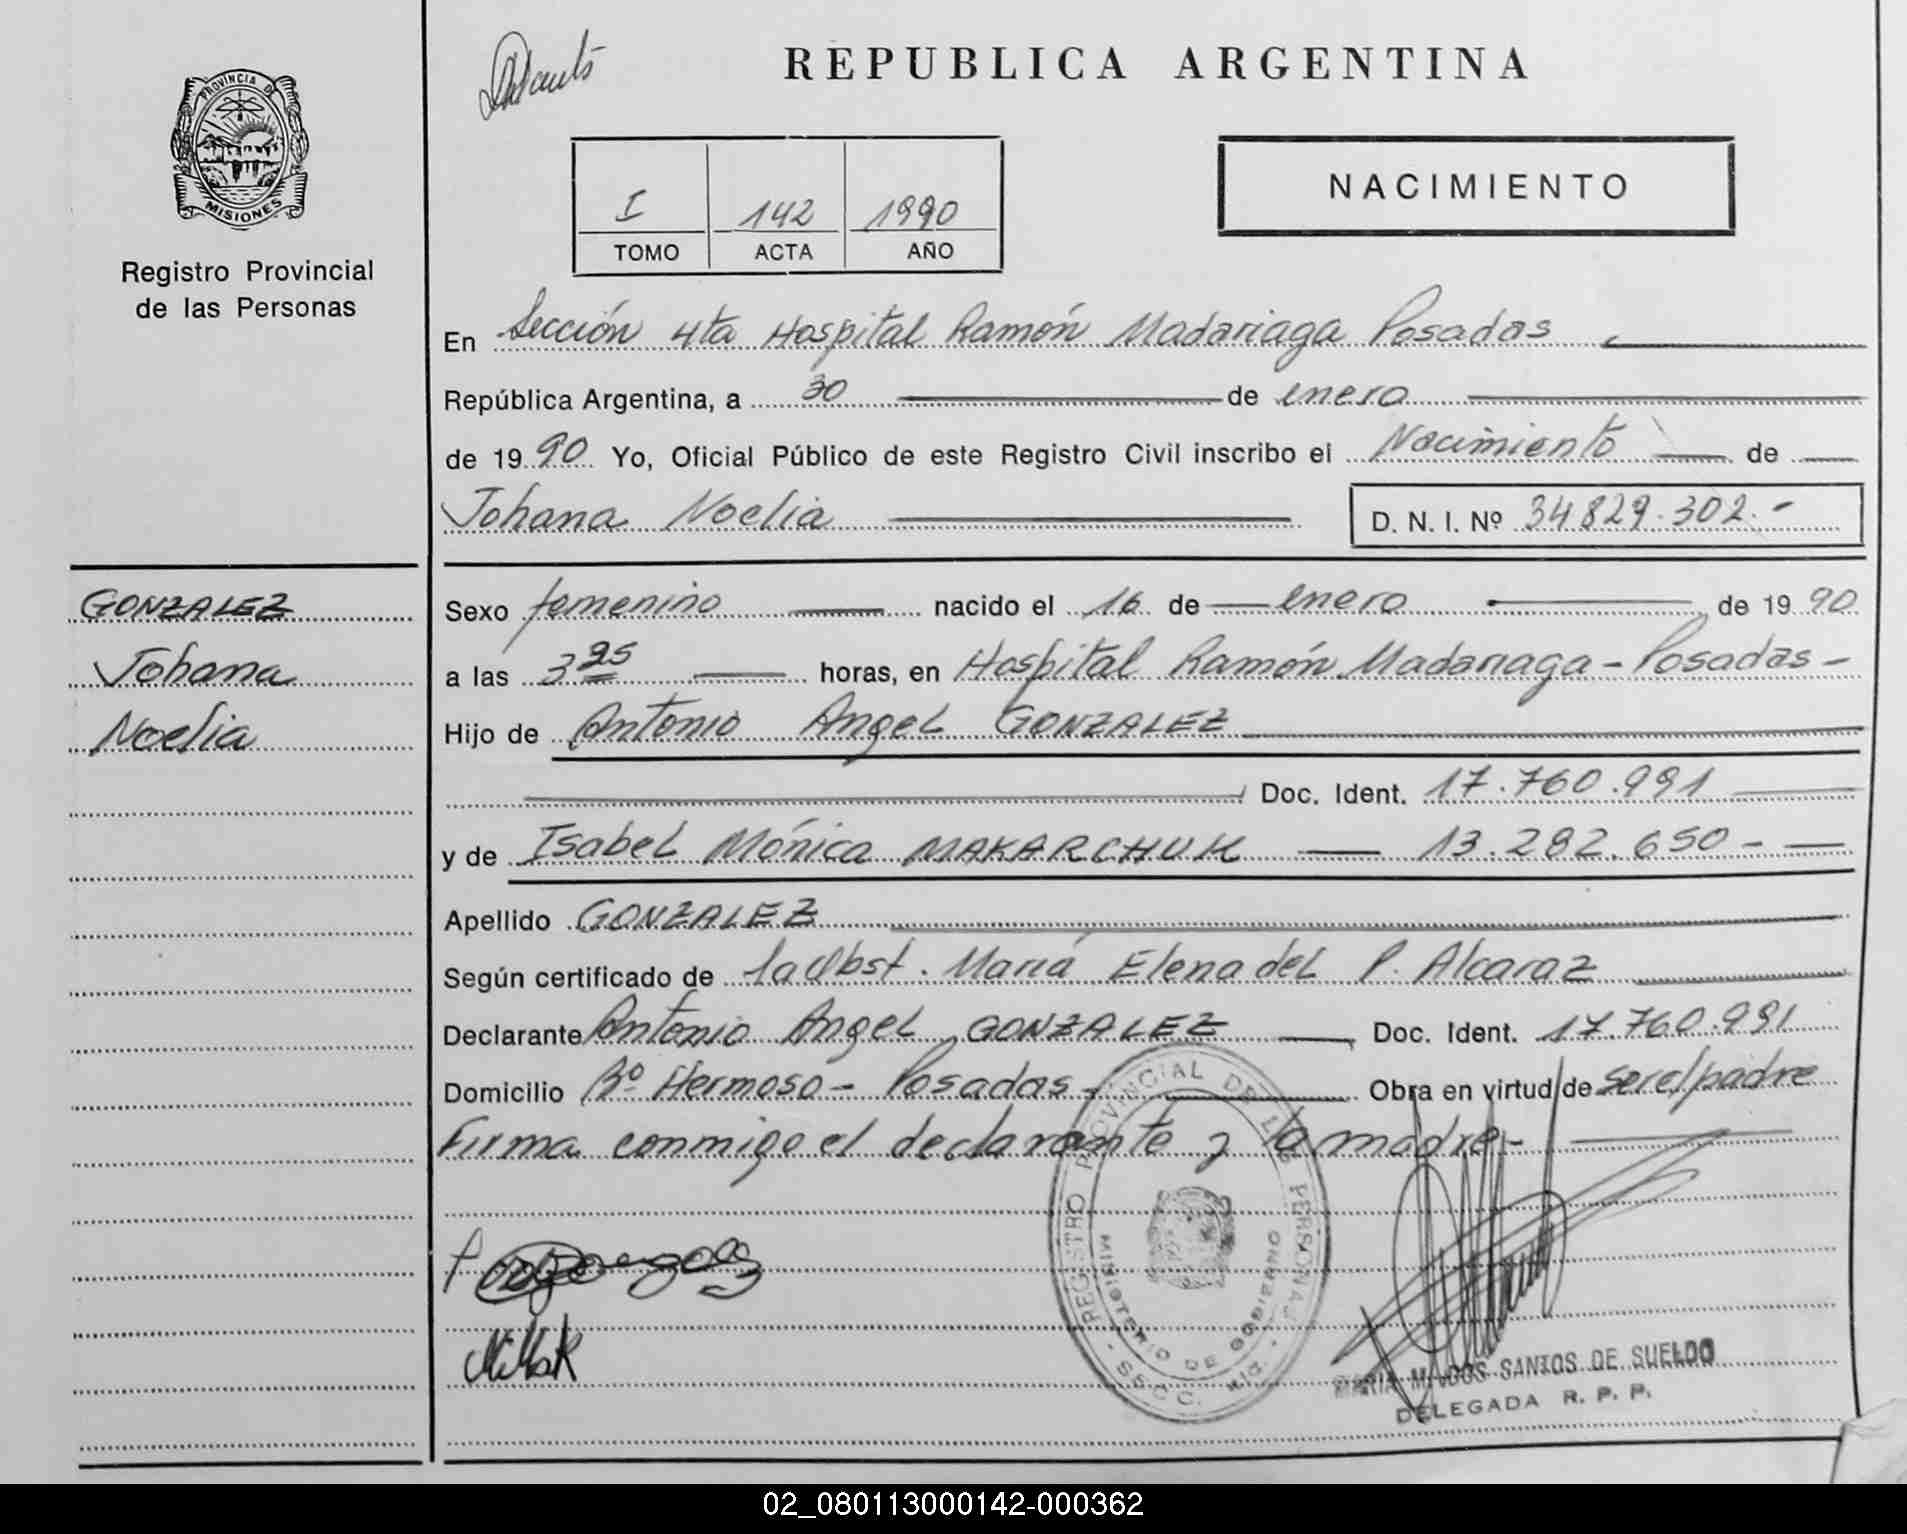 REPUBLICA ARGENTINA
PROVINCIA DE
MISIONES
Registro Provincial
de las Personas
NACIMIENTO
I 142 1990
TOMO ACTA AÑO
En Sección 4ta Hospital Ramón Madariaga Posadas
República Argentina, a 30 de enero
de 1990 Yo, Oficial Público de este Registro Civil inscribo el Nacimiento de
Johana Noelia D. N. I. Nº 34829.302.-
GONZALEZ
Johana
Noelia
Sexo femenino nacido el 16 de enero de 1990
a las 3 25 horas, en Hospital Ramón Madariaga - Posadas -
Hijo de Antonio Angel GONZALEZ
Doc. Ident. 17.760.991
y de Isabel Mónica MAKARCHUK 13.282.650-
Apellido GONZALEZ
Según certificado de la Obst. María Elena del P. Alcaraz
Declarante Antonio Angel GONZALEZ Doc. Ident. 17.760.991
Domicilio Bº Hermoso - Posadas - Obra en virtud de ser el padre
Firma conmigo el declarante y la madre-
REGISTRO PROVINCIAL DE LAS PERSONAS
MINISTERIO DE GOBIERNO
SECC.
MARIA M. DOS SANTOS DE SUELDO
DELEGADA R. P. P.
02_080113000142-000362